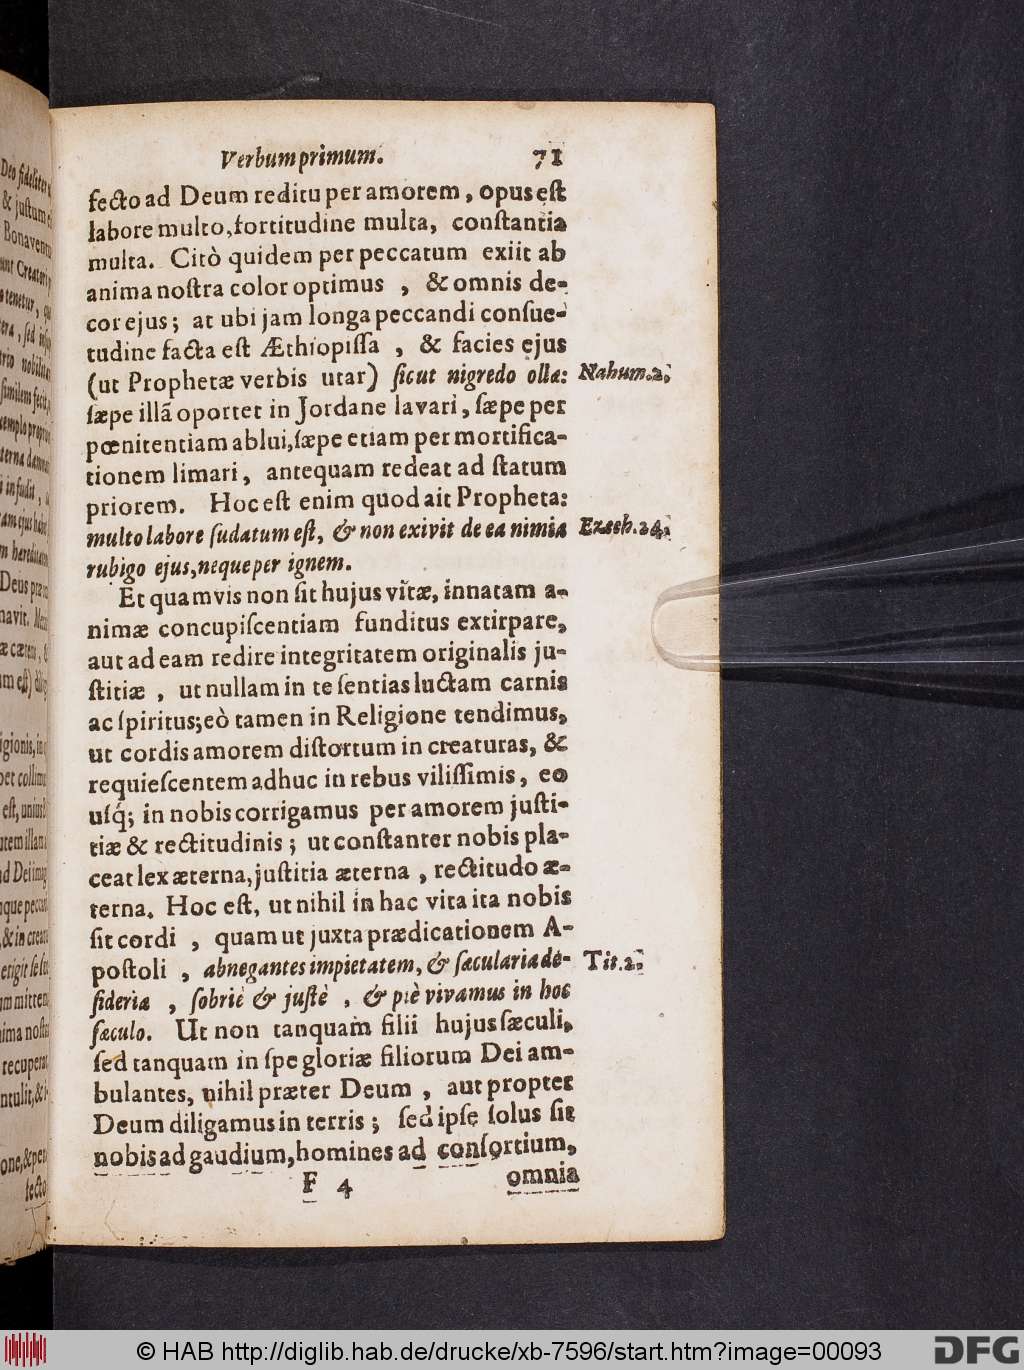 Verbum primum. 71
fecto ad Deum reditu per amorem, opus est
labore multo, fortitudine multa, constantia
multa. Citò quidem per peccatum exiit ab
anima nostra color optimus, & omnis de-
cor ejus; at ubi jam longa peccandi consue-
tudine facta est Æthiopissa, & facies ejus
(ut Prophetæ verbis utar) sicut nigredo ollæ: Nahum. 2.
sæpe illã oportet in Jordane lavari, sæpe per
pœnitentiam ablui, sæpe etiam per mortifica-
tionem limari, antequam redeat ad statum
priorem. Hoc est enim quod ait Propheta:
multo labore sudatum est, & non exivit de ea nimia Ezech. 24.
rubigo ejus, neque per ignem.
Et quamvis non sit hujus vĩtæ, innatam a-
nimæ concupiscentiam funditus extirpare,
aut ad eam redire integritatem originalis ju-
stitiæ, ut nullam in te sentias luctam carnis
ac spiritus; eò tamen in Religione tendimus,
ut cordis amorem distortum in creaturas, &
requiescentem adhuc in rebus vilissimis, eo
usq́; in nobis corrigamus per amorem justi-
tiæ & rectitudinis; ut constanter nobis pla-
ceat lex æterna, justitia æterna, rectitudo æ-
terna. Hoc est, ut nihil in hac vita ita nobis
sit cordi, quam ut juxta prædicationem A-
postoli, abnegantes impietatem, & sæcularia de- Tit. 2.
sideria, sobriè & justè, & piè vivamus in hoc
sæculo. Ut non tanquam filii hujus sæculi,
sed tanquam in spe gloriæ filiorum Dei am-
bulantes, nihil præter Deum, aut propter
Deum diligamus in terris; sed ipse solus sit
nobis ad gaudium, homines ad consortium,
F 4 omnia
© HAB http://diglib.hab.de/drucke/xb-7596/start.htm?image=00093
DFG